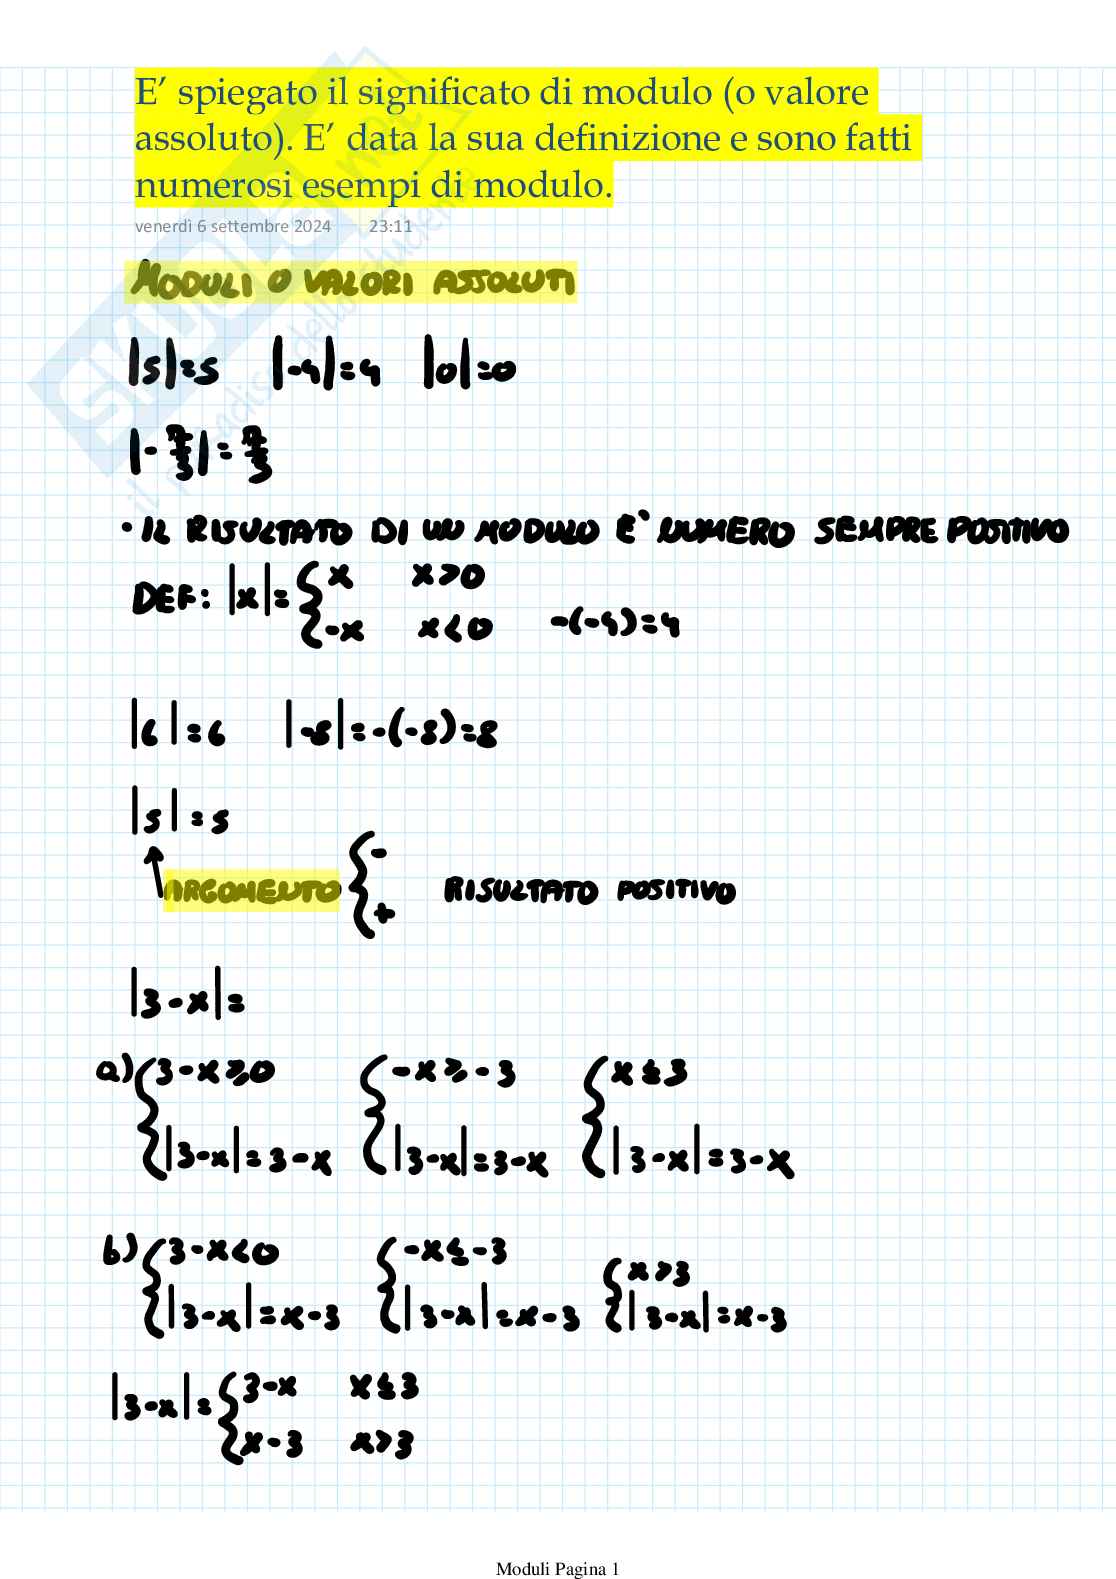 E' spiegato il significato di modulo (o valore
assoluto). E' data la sua definizione e sono fatti
numerosi esempi di modulo.
venerdì 6 settembre 2024 23:11
MODULI O VALORI ASSOLUTI
|5|=5 |-4|=4 |0|=0
|-7/3|=7/3
• IL RISULTATO DI UN MODULO E' NUMERO SEMPRE POSITIVO
DEF: |x|= { x x>0
{ -x x<0 -(-4)=4
|6|=6 |-8|=-(-8)=8
|5|=5
ARGOMENTO { - + RISULTATO POSITIVO
|3-x|=
a) { 3-x≥0 { -x≥-3 { x≤3
{ |3-x|=3-x { |3-x|=3-x { |3-x|=3-x
b) { 3-x<0 { -x≤-3 { x>3
{ |3-x|=x-3 { |3-x|=x-3 { |3-x|=x-3
|3-x|= { 3-x x≤3
{ x-3 x>3
Moduli Pagina 1